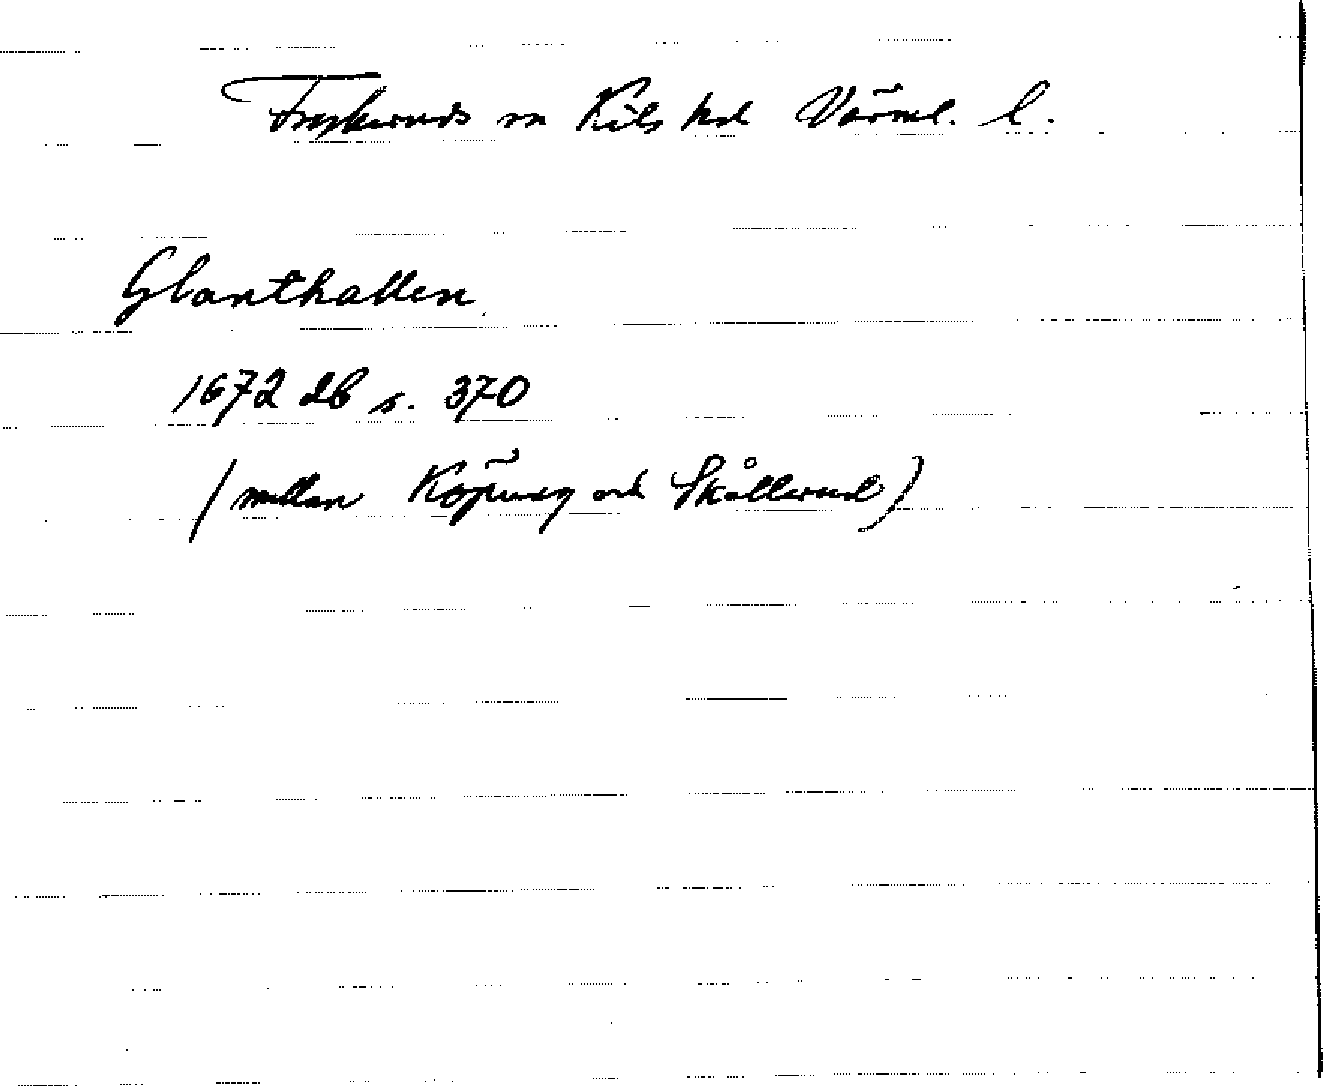 Frykeruds sn Kils hd Värml. l.
Glanthallen
1672 db s. 370
(mellan Köping och Skållerud)